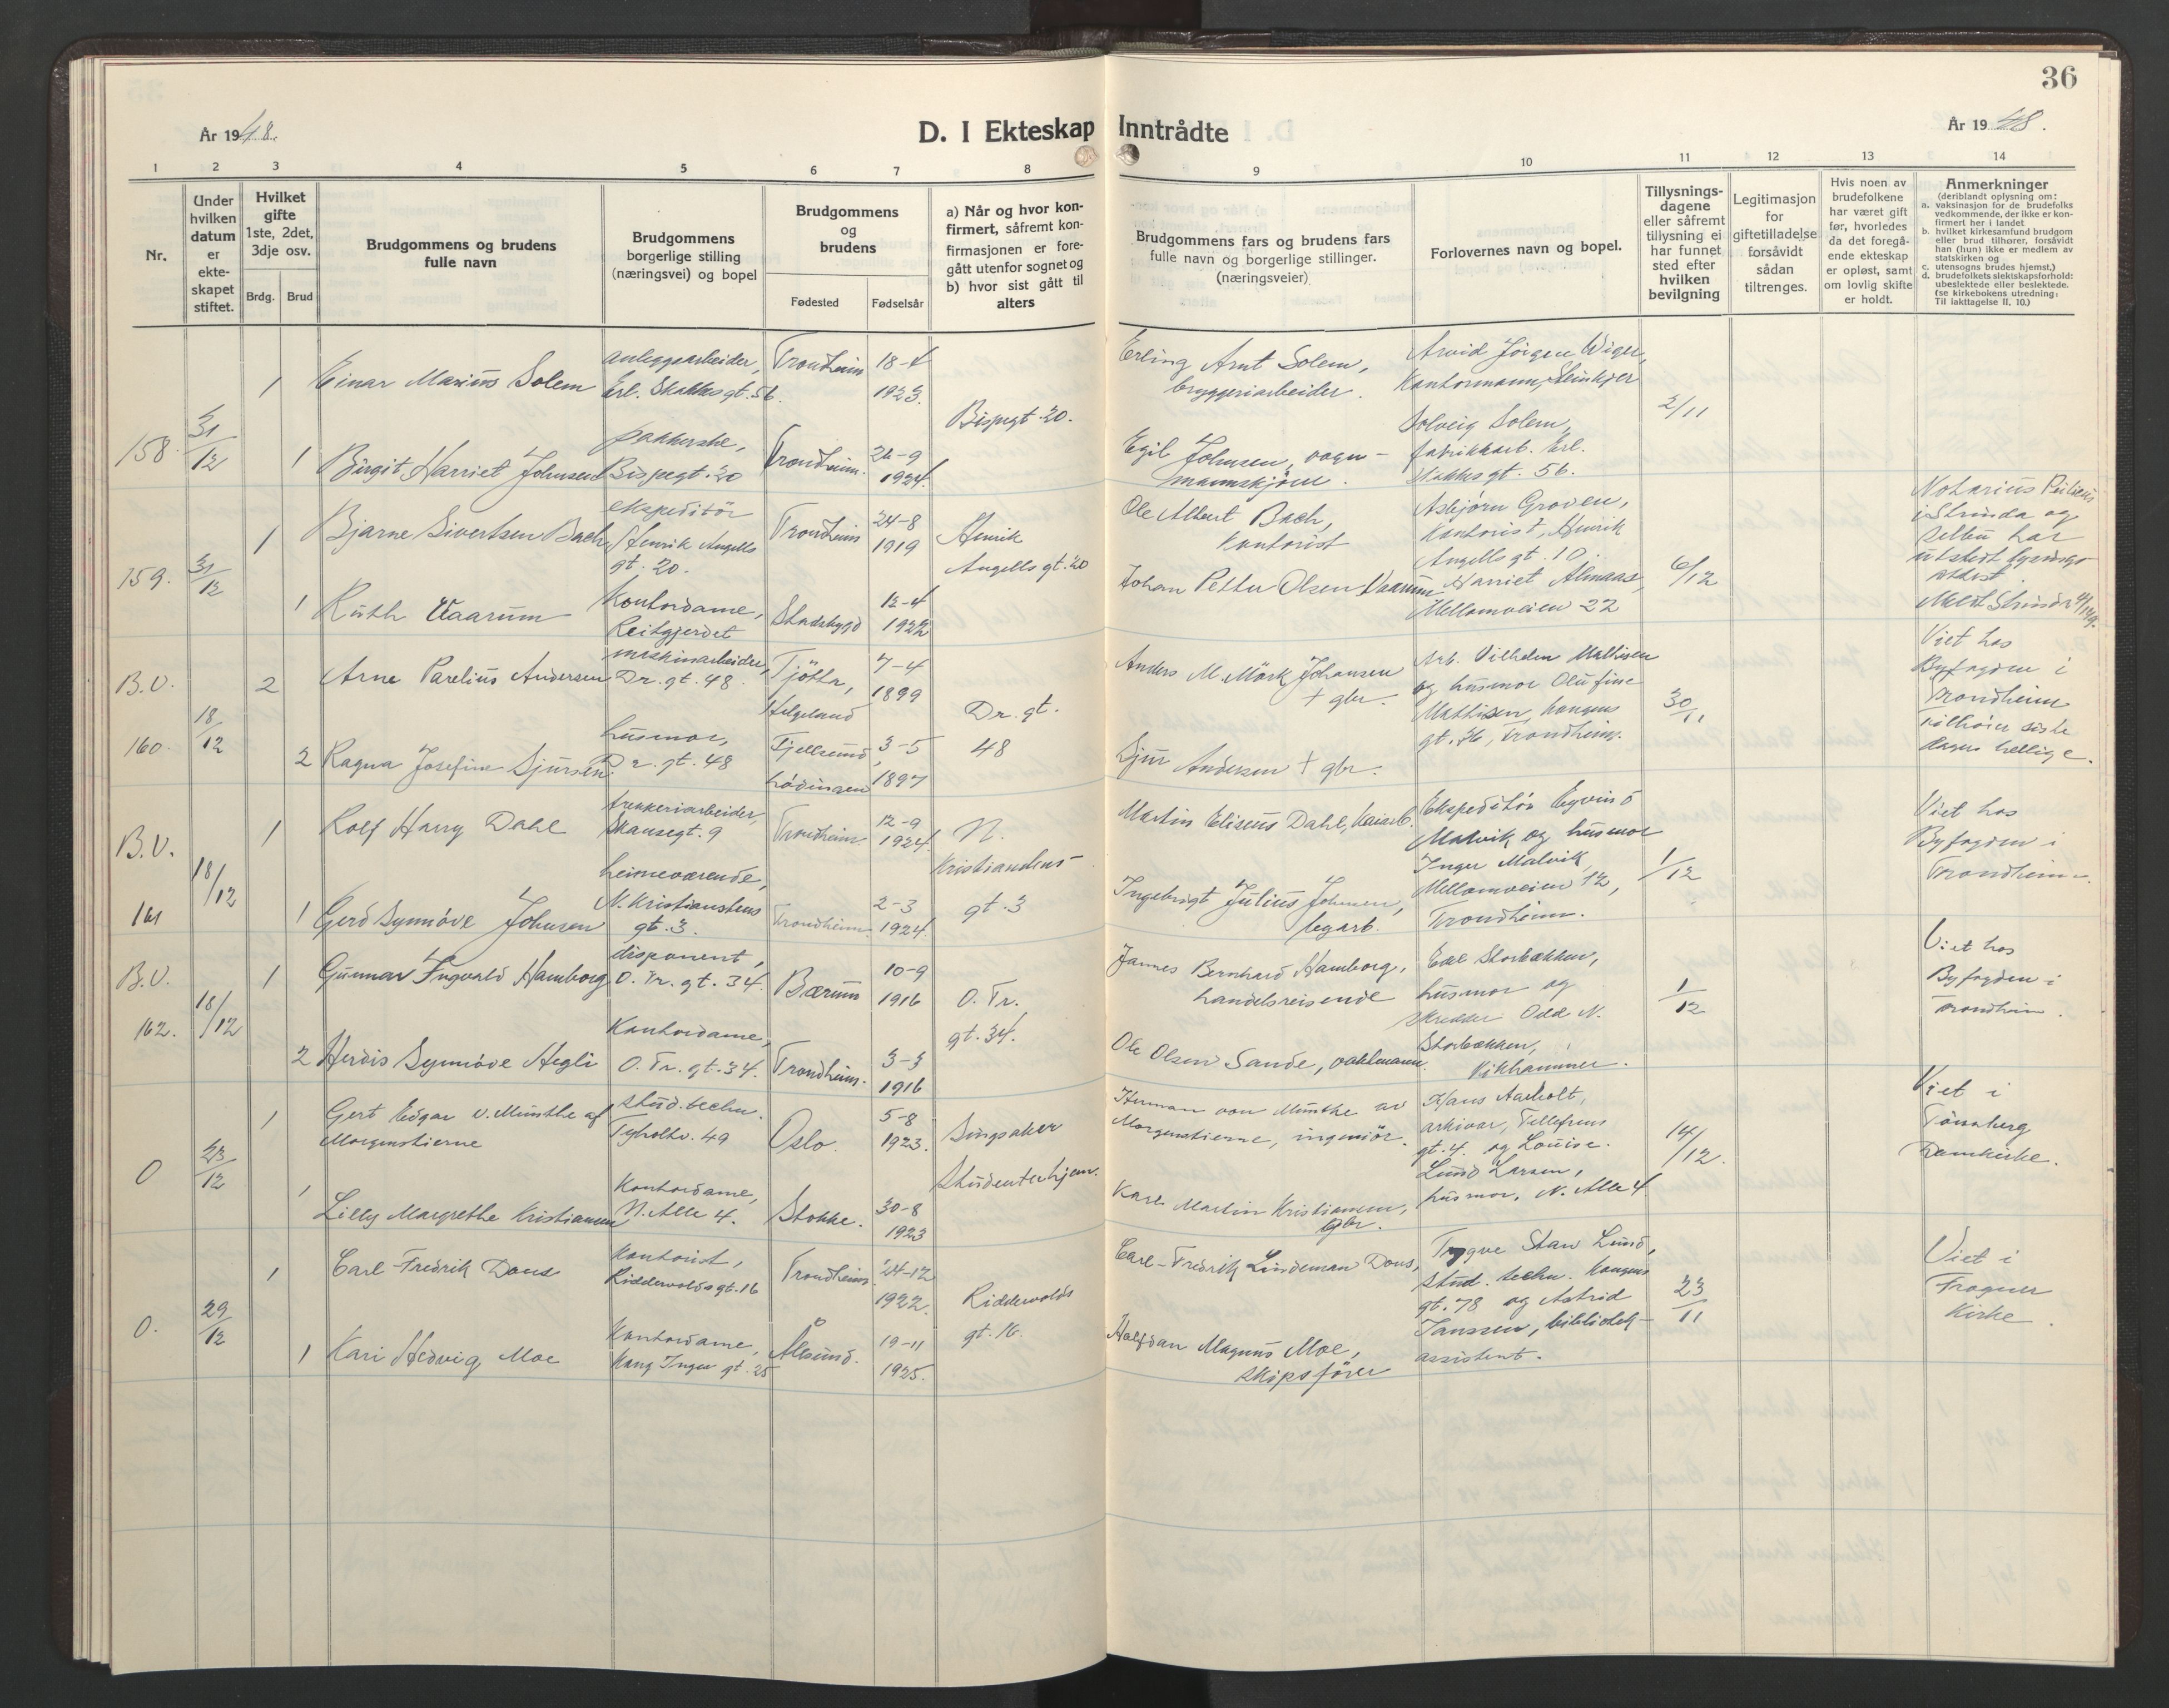 36
År 1948.
D. I Ekteskap Inntrådte
År 1948.
1 2 3 4 5 6 7 8 9 10 11 12 13 14
Nr.
Under hvilken datum er ekteskapet stiftet.
Hvilket gifte 1ste, 2det, 3dje osv.
Brdg. Brud
Brudgommens og brudens fulle navn
Brudgommens borgerlige stilling (næringsvei) og bopel
Brudgommens og brudens
Fødested Fødselsår
a) Når og hvor konfirmert, såfremt konfirmasjonen er foregått utenfor sognet og b) hvor sist gått til alters
Brudgommens fars og brudens fars fulle navn og borgerlige stillinger. (næringsveier)
Forlovernes navn og bopel.
Tillysningsdagene eller såfremt tillysning ei har funnet sted efter hvilken bevilgning
Legitimasjon for giftetilladelse forsåvidt sådan tiltrenges.
Hvis noen av brudefolkene har været gift før, hvorledes da det foregående ekteskap er opløst, samt om lovlig skifte er holdt.
Anmerkninger
(deriblandt oplysning om:
a. vaksinasjon for de brudefolks vedkommende, der ikke er konfirmert her i landet
b. hvilket kirkesamfund brudgom eller brud tilhører, forsåvidt han (hun) ikke er medlem av statskirken og
c. utensogns brudes hjemst.)
d. brudefolkets slektskapsforhold: ubeslektede eller beslektede. (se kirkebokens utredning: Til iakttagelse II. 10.)
158. 31/12
1 Einar Marius Solem
anleggsarbeider, Erl. Skakkes gt. 56.
Trondheim 18-4 1923.
Bispegt. 20.
Erling Arnt Solem, bryggeriarbeider.
Arvid Jörgen Wiger, Kontormann, Steinkjer
Solveig Solem, fabrikkarb. Erl. Skakkes gt. 56.
2/11
1 Birgit Harriet Johnsen
pakkerske, Bispegt. 20
Trondheim. 26-9 1924.
Egil Johnsen, vognmannskjörer.
159. 31/12
1 Bjarne Sivertsen Bach
ekspeditör Henrik Angells gt. 20.
Trondheim 24-8 1919
Henrik Angells gt. 20
Ole Albert Bach, Kontorist
Asbjörn Groven, Kontorist, Henrik Angells gt. 10.
Harriet Almaas, Mellomveien 22
6/12
Notarius Publicus i Strinda og Selbu har utstedt lysnings attest.
Meldt Strinda 4/1 49.
1 Ruth Vaarum
Kontordame, Reitgjerdet
Stadsbygd 12-4 1922
Johan Petter Olsen Vaarum
B.V. 160. 18/12
2 Arne Parelius Andersen
maskinarbeider, Dr. gt. 48.
Tjötta, Helgeland 7-4 1899
Dr. gt. 48
Anders M. Mörk Johansen + gbr.
Arb. Vilhelm Mathisen og husmor Olufine Mathisen, Kongens gt. 36, Trondheim.
30/11
Viet hos Byfogden i Trondheim
tilhörer siste dagers hellige.
2 Ragna Josefine Sjursen.
husmor, Dr. gt. 48
Fjellsund, Lödingen 3-5 1897
Sjur Andersen + gbr.
B.V. 161 18/12
1 Rolf Harry Dahl
trekkeriarbeider, Skansegt. 9
Trondheim. 12-9 1924.
N. Kristianstens gt. 3
Martin Eliseus Dahl, kaiarb.
Ekspeditör Eyvind Malvik og husmor Inger Malvik, Mellomveien 12, Trondheim.
1/12
Viet hos Byfogden i Trondheim.
1 Gerd Synnöve Johnsen
heimeværende, N. Kristianstens gt. 3.
Trondheim. 2-3 1924.
Ingebrigt Julius Johnsen, legarb.
B.V. 162. 18/12
1 Gunnar Ingvald Hamborg
disponent, O. Tr. gt. 34.
Bærum 10-9 1916
O. Tr. gt. 34.
Jannes Bernhard Hamborg, handelsreisende
Edel Storbækken, husmor og skredder Odd N. Storbækken, Vikhammer.
1/12
Viet hos Byfogden i Trondheim.
2 Herdis Synnöve Hegli
Kontordame, O. Tr. gt. 34.
Trondheim. 3-3 1916
Ole Olsen Sande, vaktmann.
0 23/12
1 Gert Edgar v. Munthe af Morgenstierne
stud. techn. Tyholtv. 49
Oslo. 5-8 1923
Singsaker Studenterhjem.
Herman von Munthe av Morgenstierne, ingeniör.
Hans Aarholt, arkivar, Tellefsens gt. 4. og Louise Lund Larsen, husmor, N. Alle 4.
14/12.
Viet i Tönsberg Domkirke.
1 Lilly Margrethe Kristiansen
Kontordame, N. Alle 4.
Stokke. 30-8 1923
Karl Martin Kristiansen, Gbr.
0. 29/12
1 Carl-Fredrik Dons
Kontorist, Riddervolds gt. 16
Trondheim. 24-12 1922.
Riddervolds gt. 16.
Carl-Fredrik Lindeman Dons,
Trygve Staw Lund, stud. techn. Kongens gt. 78 og Astrid Janssen, bibliotekassistent.
23/11
Viet i Frogner Kirke.
1 Kari Hedvig Moe
Kontordame, Kong Inges gt. 25
Ålesund. 19-11 1925.
Halfdan Magnus Moe, skipsförer